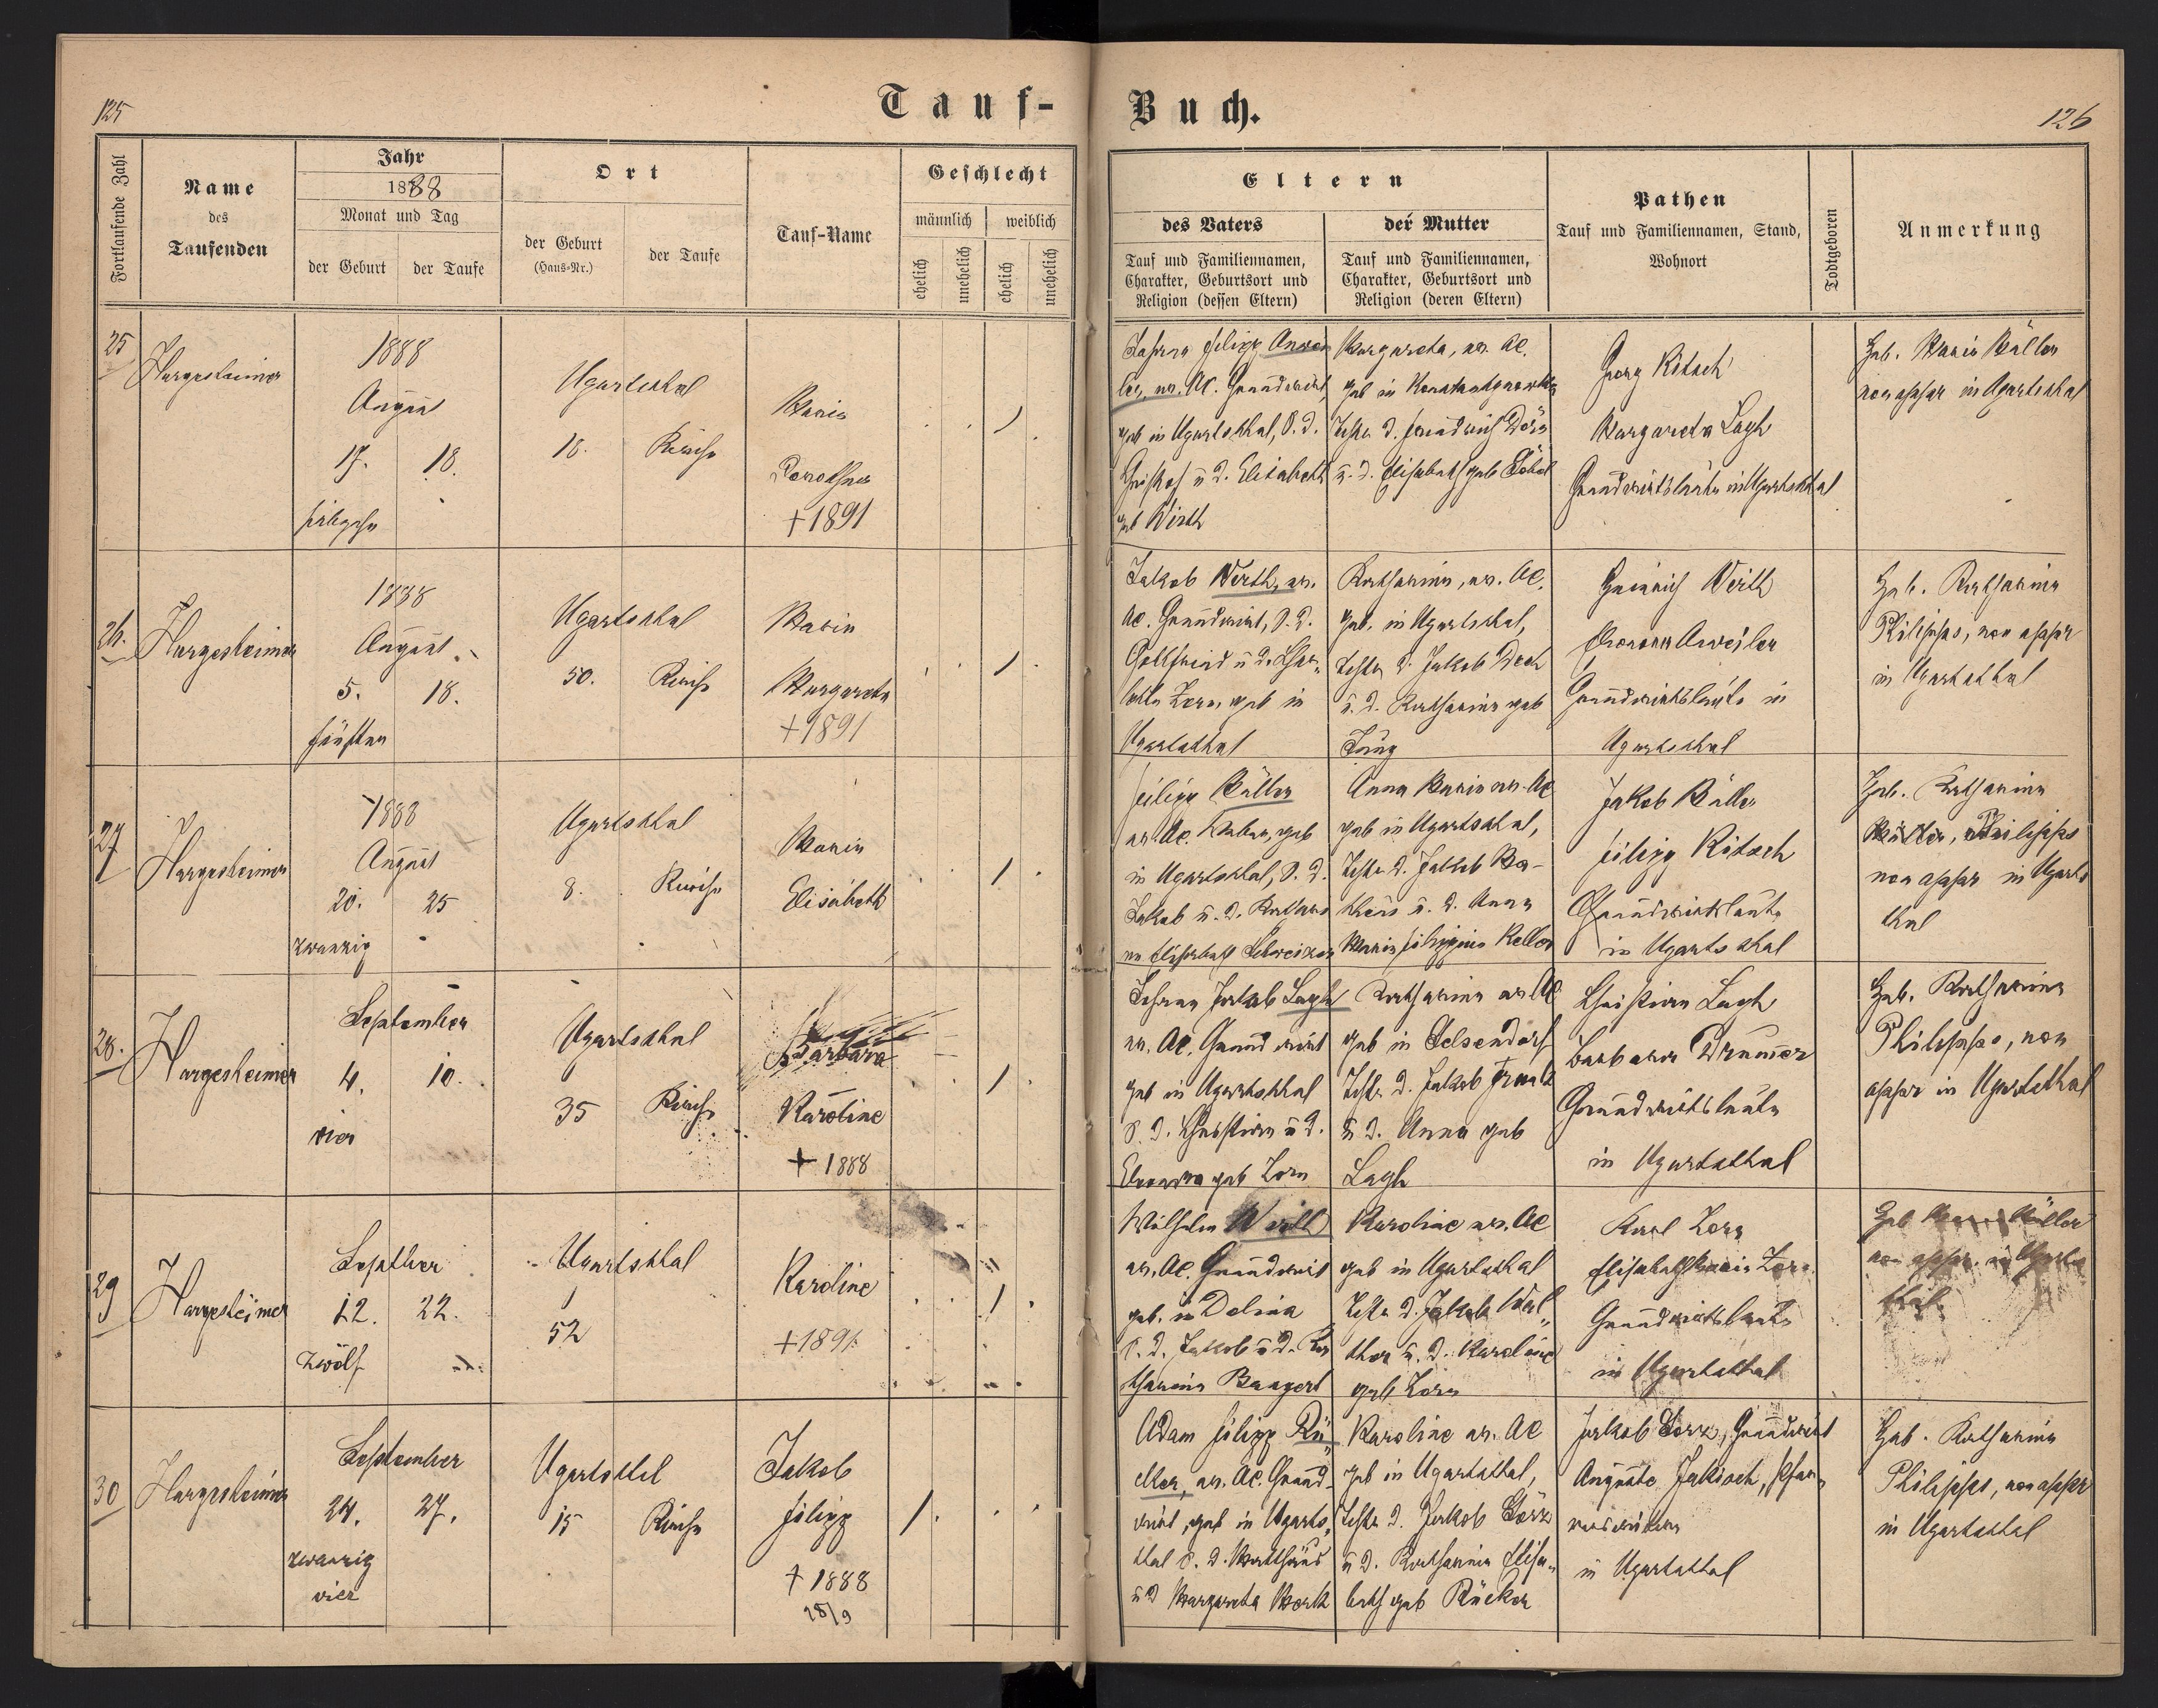 125
Tauf-
Fortlaufende Zahl
Name
des
Taufenden
Jahr
1888
Monat und Tag
der Geburt
der Taufe
Ort
der Geburt
(Haus-Nr.)
der Taufe
Tauf-Name
Geschlecht
männlich
weiblich
ehelich
unehelich
ehelich
unehelich
25
Hargesheimer
1888
August
17. 18.
siebzehn
Ugartsthal
18. Kirche
Maria
Dorothea
+1891
26.
Hargesheimer
1888
August
5. 18.
fünften
Ugartsthal
50. Kirche
Maria
Margareta
+1891
27
Hargesheimer
1888
August
20. 25
zwanzig
Ugartsthal
8. Kirche
Maria
Elisabeth
28.
Hargesheimer
September
4. 10.
vier
Ugartsthal
35 Kirche
Barbara
Karoline
+ 1888
29
Hargesheimer
Septber
12. 22.
zwölf
Ugartsthal
52
Karoline
+1891
30
Hargesheimer
September
24. 27.
zwanzig
vier
Ugartsthal
15 Kirche
Jakob
Filipp
+ 1888
28/9
Buch.
126
Eltern
des Vaters
Tauf und Familiennamen,
Charakter, Geburtsort und
Religion (dessen Eltern)
der Mutter
Tauf und Familiennamen,
Charakter, Geburtsort und
Religion (deren Eltern)
Pathen
Tauf und Familiennamen, Stand,
Wohnort
Todtgeboren
Anmerkung
Johann Filipp Anwei
ler, ev. AC. Grundwirt,
geb in Ugartsthal, S. d.
Christof u d. Elisabeth
geb Wirth
Margareta, ev. AC.
geb in
Tochter d. Friedrich Dörn
u. d. Elisabeth geb
Georg Kitsch
Margareta Lagh
Grundwirtsleute in Ugartsthal
Heb. Maria Müller
non appr in Ugartsthal
Jakob Werth, ev.
AC. Grundwirt, S. d.
Gottfried u d. Char-
lotte Zorn, geb in
Ugartsthal
Katharina, ev. AC.
geb. in Ugartsthal,
Tochter d. Jakob Dech
u. d. Katharina geb
Jung
Heinrich Werth
Eleonora Arweiler
Grundwirtsleute in
Ugartsthal
Heb. Katharina
Philipps, non appr
in Ugartsthal
Filipp Müller
ev. AC. Weber, geb
in Ugartsthal, S. d.
Jakob u. d. Kathari
na Elisabeth Schweizer
Anna Maria ev. AC
geb in Ugartsthal,
Tochter d. Jakob Ma-
theis u. d. Anna
Maria Filippine Keller
Jakob Müller
Filipp Kitsch
Grundwirtsleute
in Ugartsthal
Heb. Katharina
Philipps
non appr in Ugarts
thal
Johann Jakob Lagh
ev. AC. Grundwirt
geb in Ugartsthal
S. d. Christian u d.
Eleonora geb Zorn
Katharina ev AC
geb in Gelsendorf
Tochter d. Jakob
u d. Anna geb
Lagh
Christian Lagh
Barbara Drumer
Grundwirtsleute
in Ugartsthal
Heb. Katharina
Philipps, non
appr in Ugartsthal
Wilhelm Werth
ev. AC. Grundwirt
geb. in Dolina
S. d. Jakob u d. Ka
tharina Bangert
Karoline ev. AC
geb in Ugartsthal
Tochter d. Jakob Wal-
ther u. d. Karoline
geb Zorn
Karl Zorn
Elisabeth Maria Zorn
Grundwirtsleute
in Ugartsthal
Heb Maria Müller
non appr. in Ugarts
thal
Adam Filipp Rü-
cker, ev. AC. Grund-
wirt, geb in Ugarts-
thal S. d. Matthäus
u d Margareta Werth
Karoline ev. AC
geb in Ugartsthal,
Tochter d. Jakob Görz
u d. Katharina Elisa-
beth geb Rücker
Jakob Görz, Grundwirt
Auguste Jakisch, Pfar-
in Ugartsthal
Heb. Katharina
Philipps, non appr
in Ugartsthal